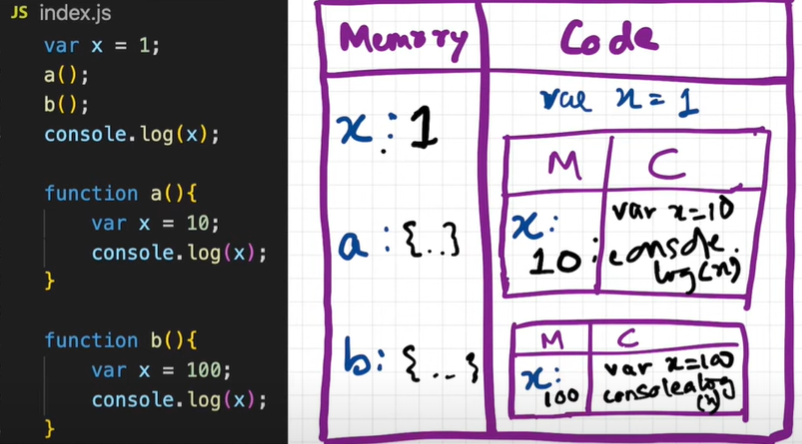 JS index.js
var x = 1;
a();
b();
console.log(x);
function a(){
var x = 10;
console.log(x);
}
function b(){
var x = 100;
console.log(x);
}
Memory
Code
x : 1
var x = 1
M
C
x:
10
var x=10
console.
log(x)
a : {..}
b: {..}
M
C
x:
100
var x=100
console.log
(x)